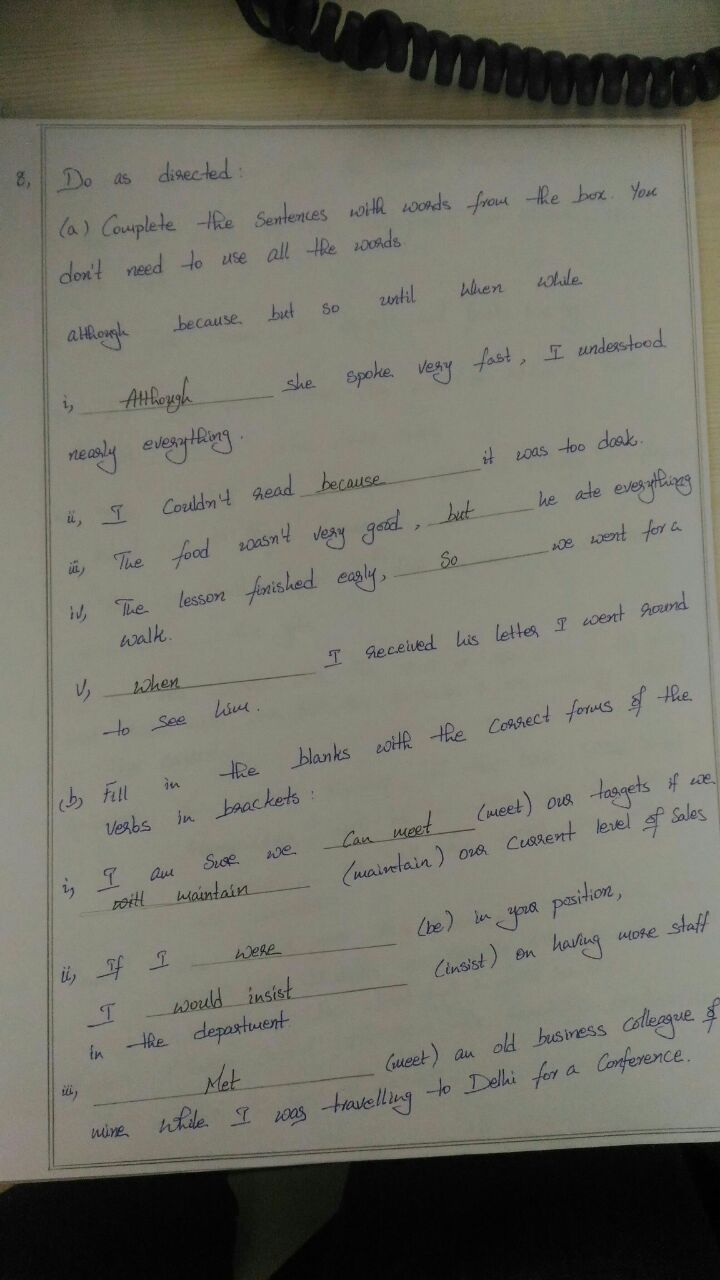 8, Do as directed:
(a) Complete the Sentences with words from the box. You
don't need to use all the words.
although because but so until when while
i, Although she spoke very fast, I understood
nearly everything.
ii, I Couldn't read because it was too dark.
iii, The food wasn't very good, but he ate everything
iv, The lesson finished early, So we went for a
walk.
v, When I received his letter I went round
to see him.
(b) Fill in the blanks with the correct forms of the
verbs in brackets:
i, I am Sure we Can meet (meet) our targets if we
will maintain (maintain) our current level of Sales
ii, If I were (be) in your position,
I would insist (insist) on having more staff
in the department
iii, Met (meet) an old business colleague of
mine while I was travelling to Delhi for a Conference.